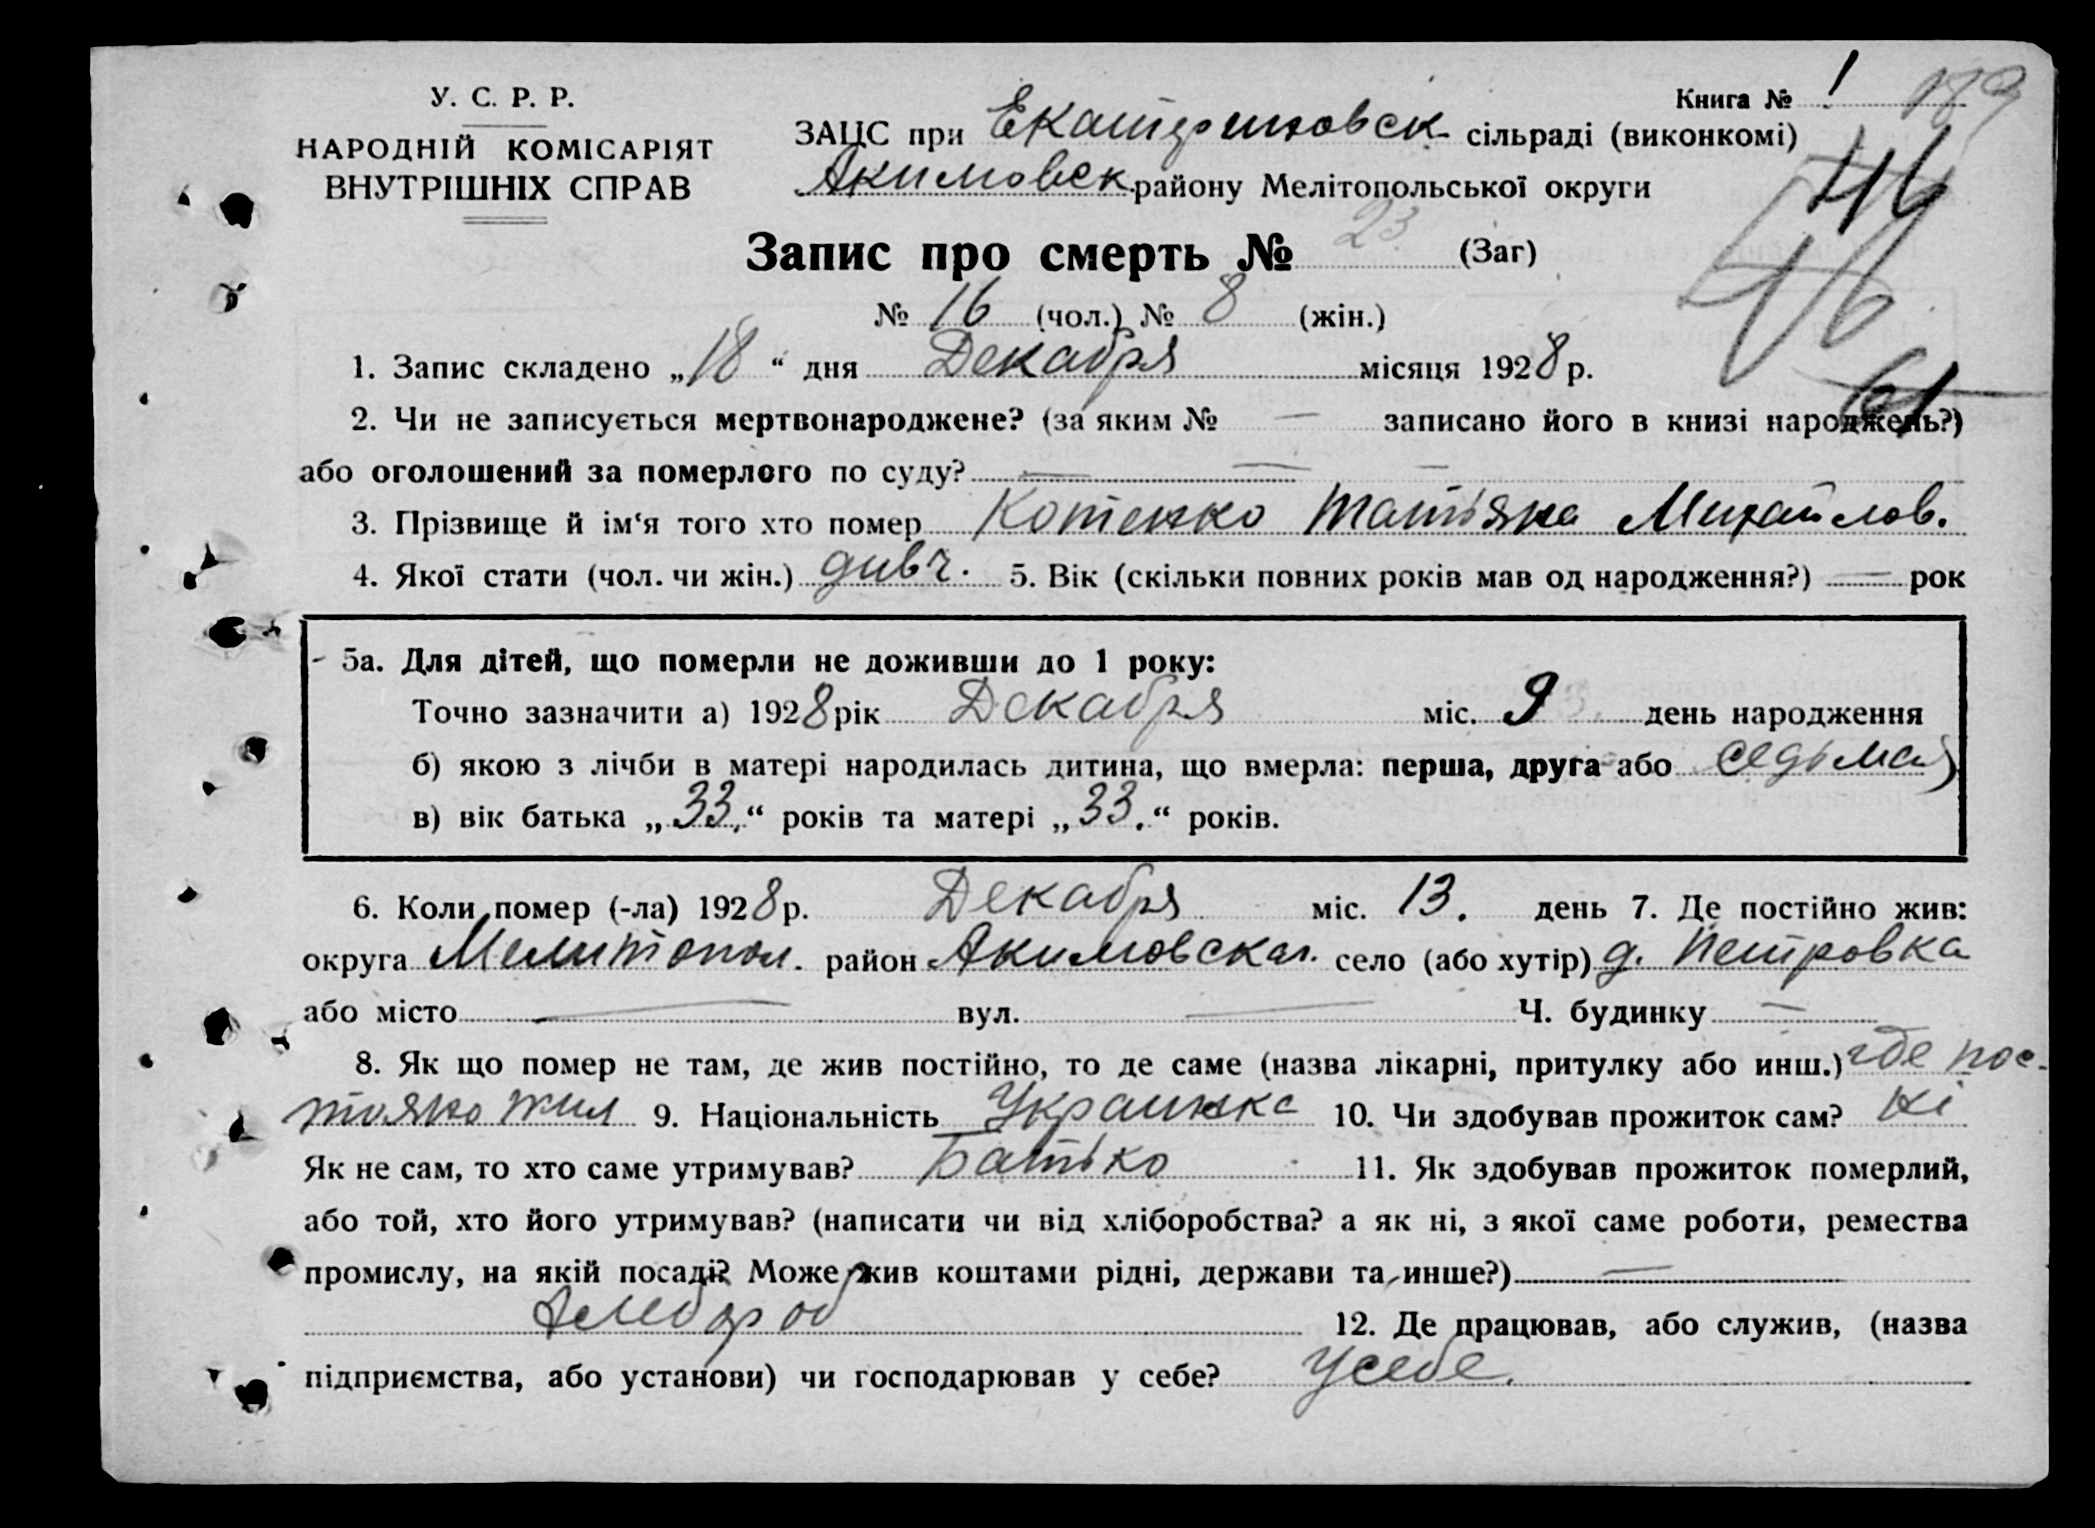 У. С. Р. Р.
НАРОДНІЙ КОМІСАРІЯТ
ВНУТРІШНІХ СПРАВ
Книга № 1
189
ЗАЦС при Екатериновск. сільраді (виконкомі)
Акимовск. району Мелітопольської округи
46
46
61
Запис про смерть № 23 (Заг)
№ 16 (чол.) № 8 (жін.)
1. Запис складено „18“ дня Декабря місяця 1928 р.
2. Чи не записується мертвонароджене? (за яким № — записано його в книзі народжень?)
або оголошений за померлого по суду? — — —
3. Прізвище й ім‘я того хто помер Котенко Татьяна Михайлов.
4. Якої стати (чол. чи жін.) дивч. 5. Вік (скільки повних років мав од народження?) — рок
5а. Для дітей, що померли не доживши до 1 року:
Точно зазначити а) 1928 рік Декабря міс. 9 день народження
б) якою з лічби в матері народилась дитина, що вмерла: перша, друга або седьмая
в) вік батька „33.“ років та матері „33.“ років.
6. Коли помер (-ла) 1928 р. Декабря міс. 13. день 7. Де постійно жив:
округа Мелитопол. район Акимовская. село (або хутір) д. Петровка
або місто — вул. — Ч. будинку —
8. Як що помер не там, де жив постійно, то де саме (назва лікарні, притулку або инш.) где пос-
тояно жил 9. Національність Украинка 10. Чи здобував прожиток сам? ні
Як не сам, то хто саме утримував? Батько 11. Як здобував прожиток померлий,
або той, хто його утримував? (написати чи від хліборобства? а як ні, з якої саме роботи, ремества
промислу, на якій посаді? Може жив коштами рідні, держави та инше?) —
хлебороб 12. Де працював, або служив, (назва
підприємства, або установи) чи господарював у себе? у себе.